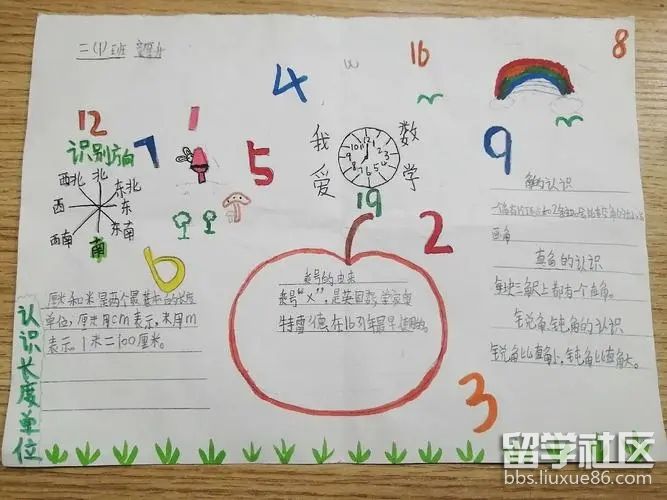 二(1)班
4
16
8
12
识别方向
7
1
5
我爱数学
12
1
2
3
4
5
6
7
8
9
10
11
19
9
西北 北 东北
西 东
西南 南 东南
6
2
3
角的认识
一个角有
直角
直角的认识
每块三角尺上都有一个直角。
锐角、钝角的认识
锐角比直角小,钝角比直角大。
乘号的由来
乘号“×”,是英国数学家
特雷德在1631年最早使用的。
认识长度单位
厘米和米是两个最基本的长度
单位,厘米用cm表示,米用m
表示。1米=100厘米。
留学社区
bbs.liuxue86.com